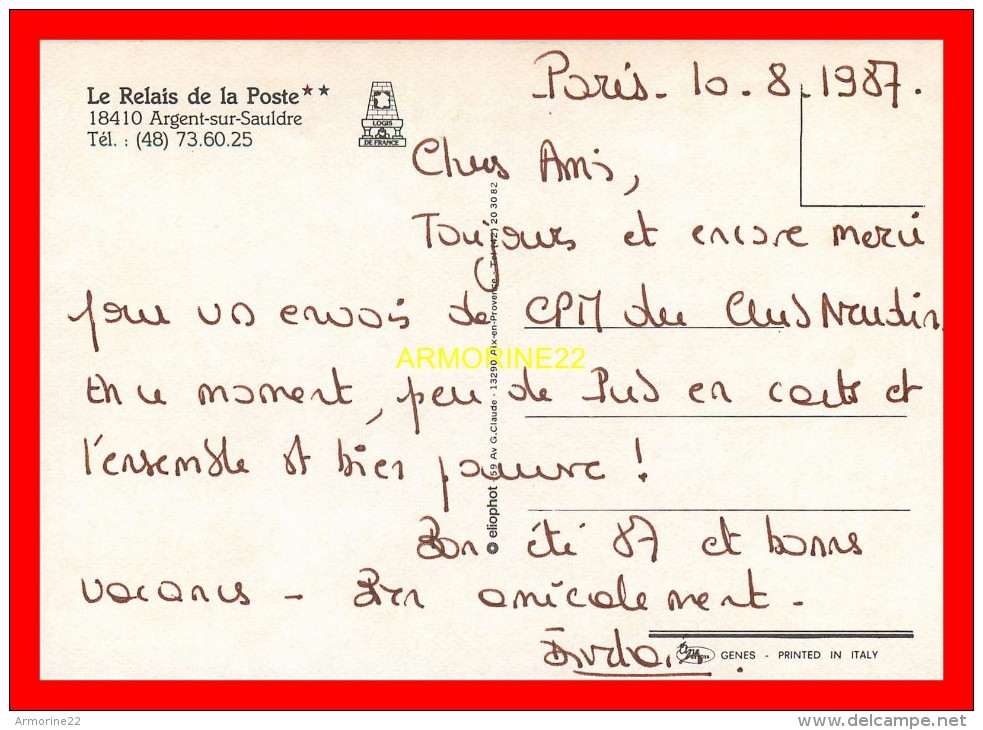 Le Relais de la Poste★★
18410 Argent-sur-Sauldre
Tél. : (48) 73.60.25
LOGIS
DE FRANCE
Paris - 10.8.1987.
Chers Amis,
Toujours et encore merci
pour vos envois de CPM du Club Naudin.
En ce moment, peu de Pub en carte et
l'ensemble est bien pauvre !
Bon été 87 et bonnes
vacances - Bien amicalement -
eliophot - 59 Av G.Claude - 13290 Aix-en-Provence - Tel (42) 20 30 82
ARMORINE22
GENES - PRINTED IN ITALY
Armorine22
www.delcampe.net